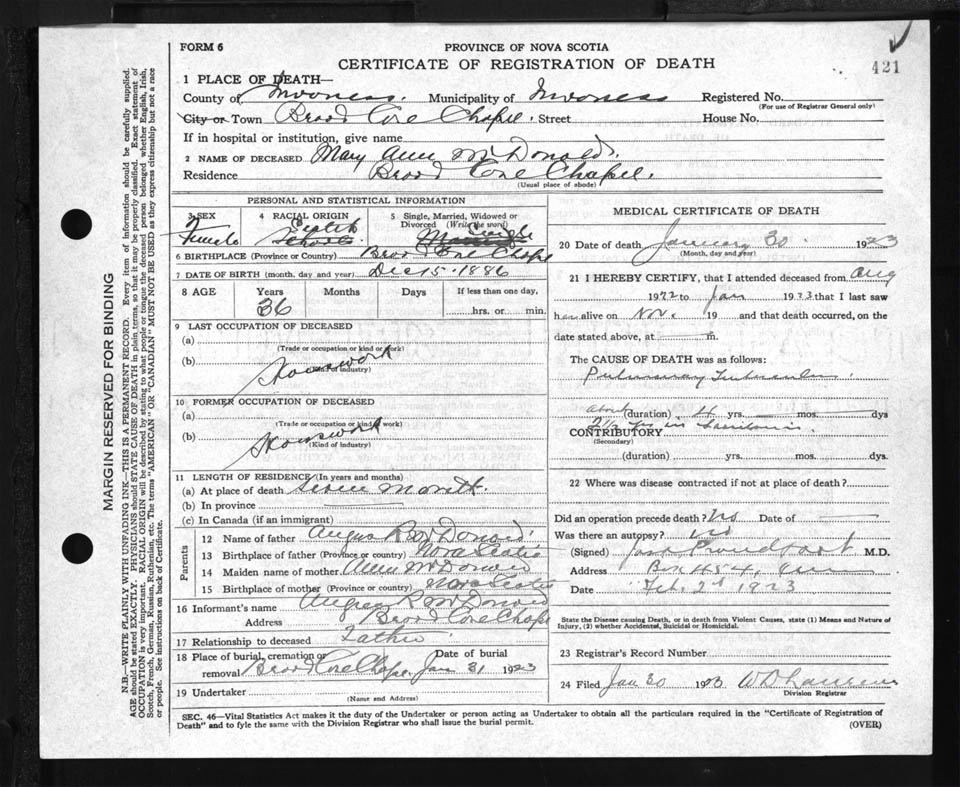 FORM 6
PROVINCE OF NOVA SCOTIA
CERTIFICATE OF REGISTRATION OF DEATH
421
1 PLACE OF DEATH—
County of Inverness Municipality of Inverness Registered No.
(For use of Registrar General only)
City or Town Broad Cove Chapel. Street House No.
If in hospital or institution, give name
2 NAME OF DECEASED Mary Ann McDonald.
Residence Broad Cove Chapel.
(Usual place of abode)
PERSONAL AND STATISTICAL INFORMATION
3 SEX Female
4 RACIAL ORIGIN Scotch
5 Single, Married, Widowed or Divorced (Write the word) Single
6 BIRTHPLACE (Province or Country) Broad Cove Chapel
7 DATE OF BIRTH (month, day and year) Dec 15. 1886
8 AGE Years Months Days If less than one day,
36 hrs. or min.
9 LAST OCCUPATION OF DECEASED
(a)
(Trade or occupation or kind of work)
(b) Housework
(Kind of industry)
10 FORMER OCCUPATION OF DECEASED
(a)
(Trade or occupation or kind of work)
(b) Housework
(Kind of industry)
11 LENGTH OF RESIDENCE (In years and months)
(a) At place of death Seven Month.
(b) In province
(c) In Canada (if an immigrant)
Parents
12 Name of father Angus R McDonald
13 Birthplace of father (Province or country) Nova Scotia
14 Maiden name of mother Ann McDonald
15 Birthplace of mother (Province or country) Nova Scotia
16 Informant's name Angus R McDonald
Address Broad Cove Chapel
17 Relationship to deceased Father
18 Place of burial, cremation or removal Broad Cove Chapel Date of burial Jan 31 1923
19 Undertaker
(Name and Address)
MEDICAL CERTIFICATE OF DEATH
20 Date of death January 30. 1923
(Month, day and year)
21 I HEREBY CERTIFY, that I attended deceased from Aug
1922 to Jan 1923 that I last saw
her alive on Nov. 19 and that death occurred, on the
date stated above, at m.
The CAUSE OF DEATH was as follows:
Pulmonary Tuberculosis
about (duration) 4 yrs. mos. dys
CONTRIBUTORY
(Secondary)
(duration) yrs. mos. dys.
22 Where was disease contracted if not at place of death?
Did an operation precede death? No Date of
Was there an autopsy? No
(Signed) M.D.
Address Box 454,
Date Feb. 2d 1923
State the Disease causing Death, or in death from Violent Causes, state (1) Means and Nature of
Injury, (2) whether Accidental, Suicidal or Homicidal.
23 Registrar's Record Number
24 Filed Jan 30 1923
Division Registrar
SEC. 46—Vital Statistics Act makes it the duty of the Undertaker or person acting as Undertaker to obtain all the particulars required in the "Certificate of Registration of
Death" and to fyle the same with the Division Registrar who shall issue the burial permit.
(OVER)
MARGIN RESERVED FOR BINDING
N.B.—WRITE PLAINLY WITH UNFADING INK—THIS IS A PERMANENT RECORD. Every item of information should be carefully supplied.
AGE should be stated EXACTLY. PHYSICIANS should STATE CAUSE OF DEATH in plain terms, so that it may be properly classified. Exact statement of
OCCUPATION is very important. RACIAL ORIGIN will be described by stating to what people or tongue the deceased person belonged whether English, Irish,
Scotch, French, German, Russian, Ruthenian, etc. The terms "AMERICAN" OR "CANADIAN" MUST NOT BE USED as they express citizenship but not a race
or people. See instructions on back of Certificate.